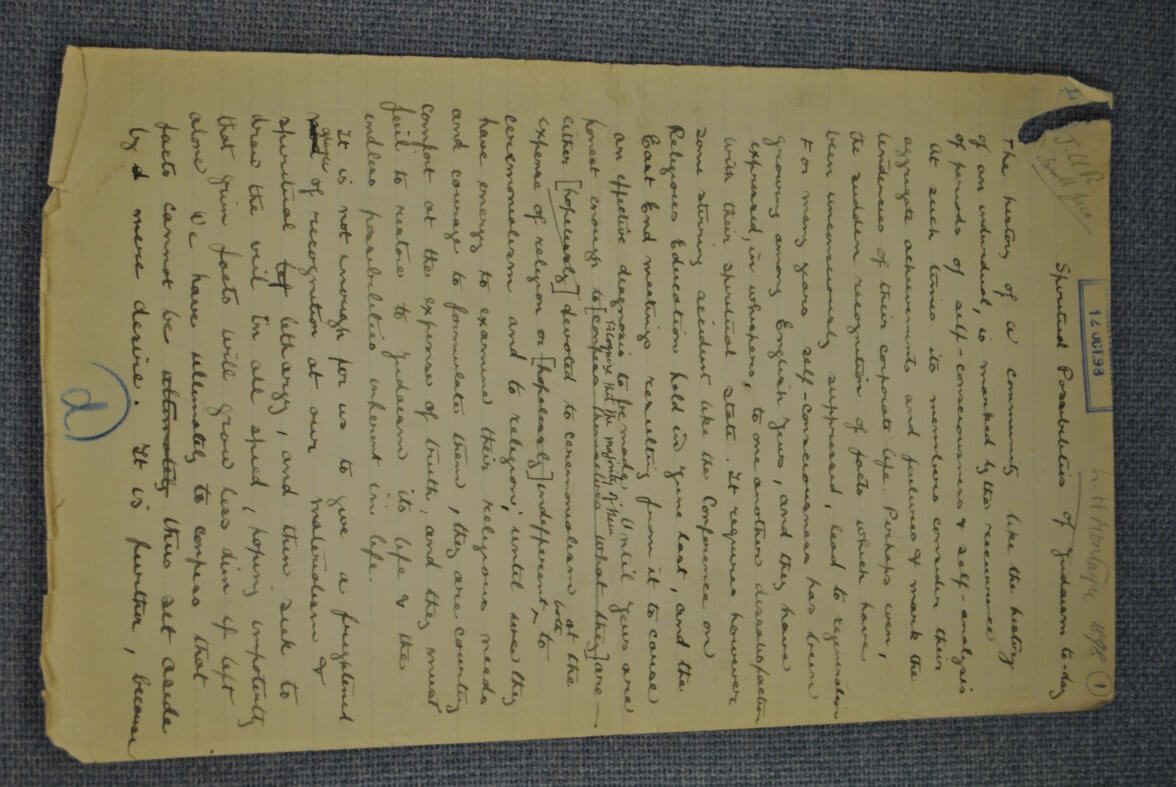 L. H. Montagu 1898 1
12 OCT. 98
J. Q. R.
Spiritual Possibilities of Judaism to-day
The history of a community like the history
of an individual, is marked by the recurrence
of periods of self-consciousness & self-analysis
At such times its members consider their
aggregate achievements and failures & mark the
tendencies of their corporate life. Perhaps even,
the sudden recognition of facts which have
been unconsciously suppressed, lead to regeneration
For many years self-consciousness has been
growing among English Jews, and they have
expressed, in whispers, to one another dissatisfaction
with their spiritual state. It requires however
some stirring accident like the Conference on
Religious Education held in June last, and the
East End meetings resulting from it to cause
an effective diagnosis to be made. Until Jews are
recognise that the majority of them
honest enough to [confess themselves what they] are —
either [hopelessly] devoted to ceremonialism at the
expense of religion or [hopelessly] indifferent both to
ceremonialism and to religion; until we they
have energy to examine their religious needs
and courage to formulate them, they are courting
comfort at the expense of truth, and they must
fail to restore to Judaism its life & the
endless possibilities inherent in life.
It is not enough for us to give a frightened
glance of recognition at our materialism &
spiritual lethargy, and then seek to
draw the veil in all speed, hoping impotently
that grim facts will grow less dim if left
alone. We have ultimately to confess that
facts cannot be ultimately thus set aside
by mere desire. It is further, because
d